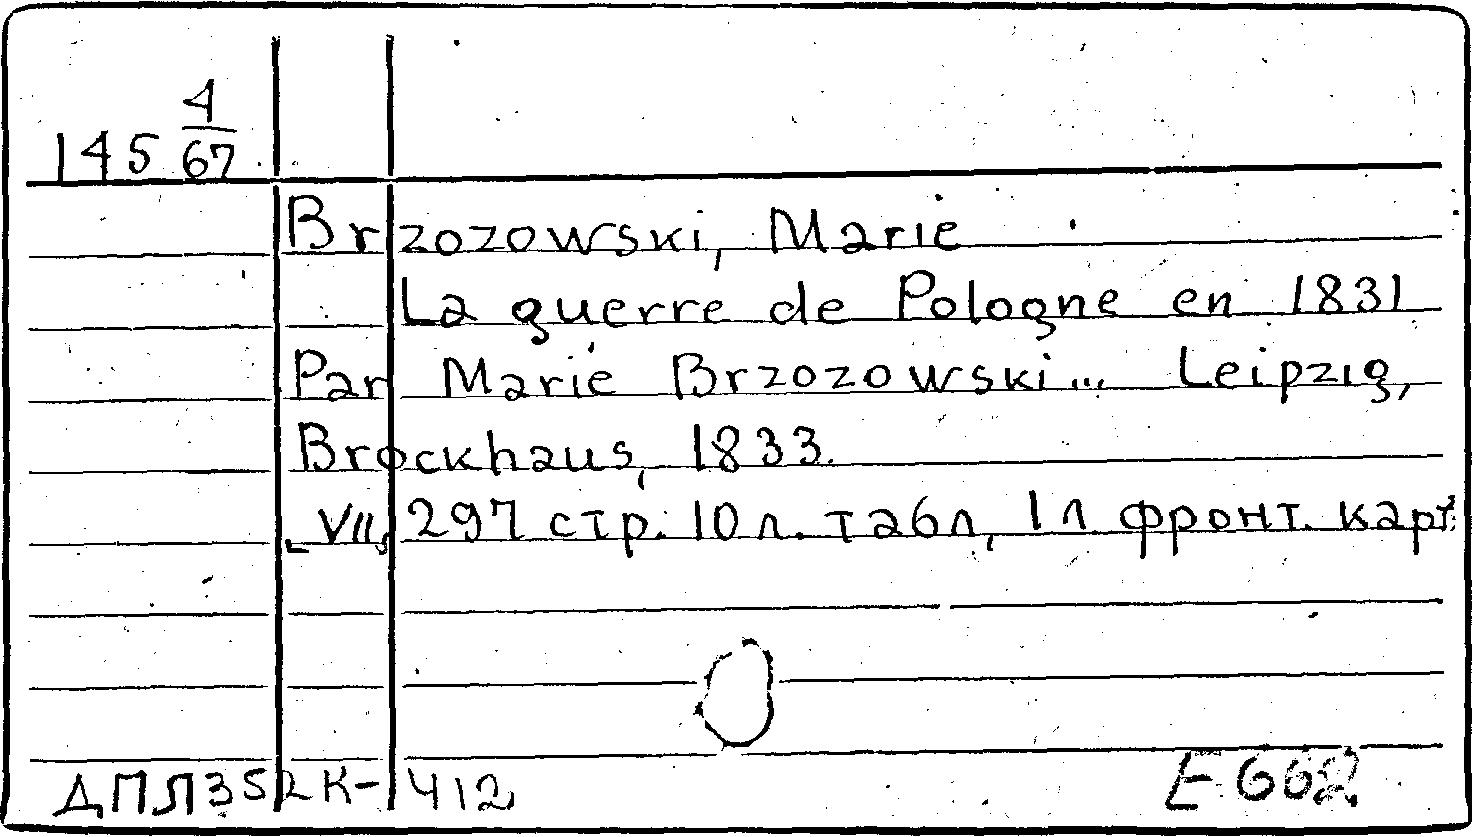 145 4/67
Brzozowski, Marie
La guerre de Pologne en 1831
Par Marie Brzozowski... Leipzig,
Brockhaus, 1833.
VII, 297 стр. 10 л. табл, 1 л фронт. карт.
ДПЛ352К-412
E-662